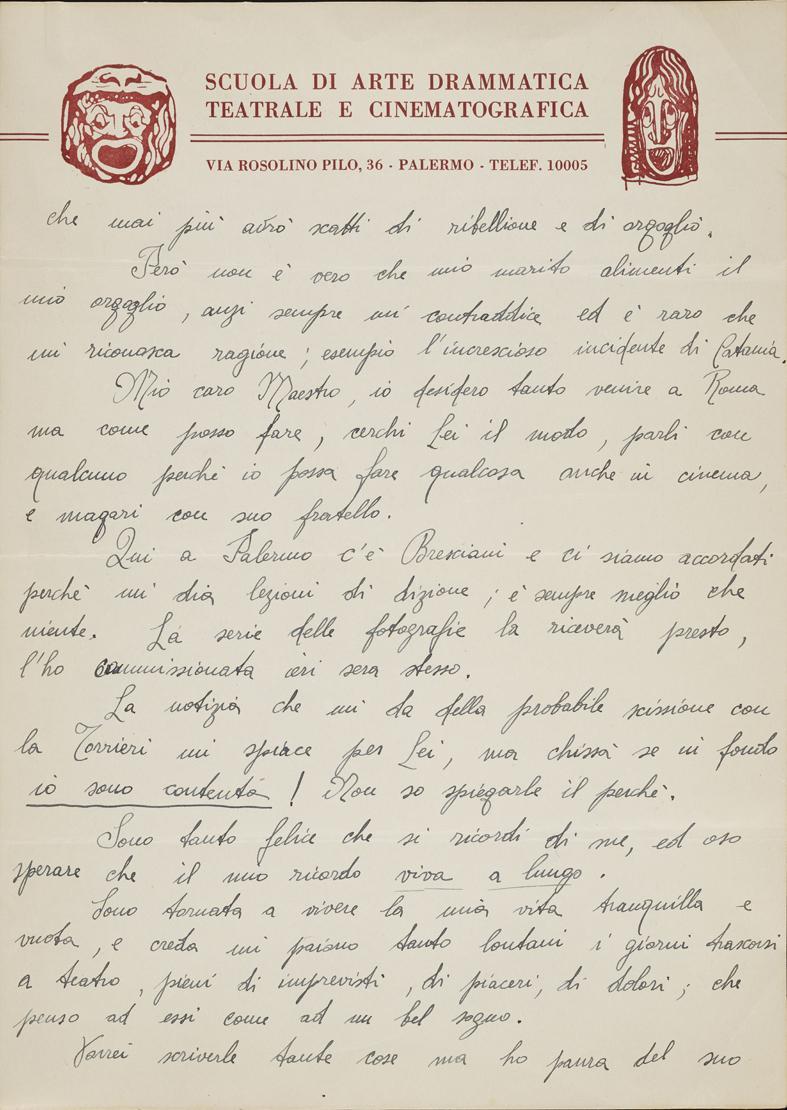 SCUOLA DI ARTE DRAMMATICA
TEATRALE E CINEMATOGRAFICA
VIA ROSOLINO PILO, 36 - PALERMO - TELEF. 10005
che mai più avrò scatti di ribellione e di orgoglio.
Però non è vero che mio marito alimenti il
mio orgoglio, anzi sempre mi contraddice ed è raro che
mi riconosca ragione; esempio l'increscioso incidente di Catania.
Mio caro Maestro, io desidero tanto venire a Roma
ma come posso fare, cerchi Lei il modo, parli con
qualcuno perchè io possa fare qualcosa anche in cinema,
e magari con suo fratello.
Qui a Palermo c'è Bresciani e ci siamo accordati
perchè mi dia lezioni di dizione; è sempre meglio che
niente. La serie delle fotografie la riceverà presto,
l'ho commissionata ieri sera stesso.
La notizia che mi da della probabile scissione con
la Torrieri mi spiace per Lei, ma chissà se in fondo
io sono contenta! Non so spiegarle il perchè.
Sono tanto felice che si ricordi di me, ed oso
sperare che il mio ricordo viva a lungo.
Sono tornata a vivere la mia vita tranquilla e
vuota, e creda mi paiono tanto lontani i giorni trascorsi
a teatro, pieni di imprevisti, di piaceri, di dolori; che
penso ad essi come ad un bel sogno.
Vorrei scriverle tante cose ma ho paura del suo